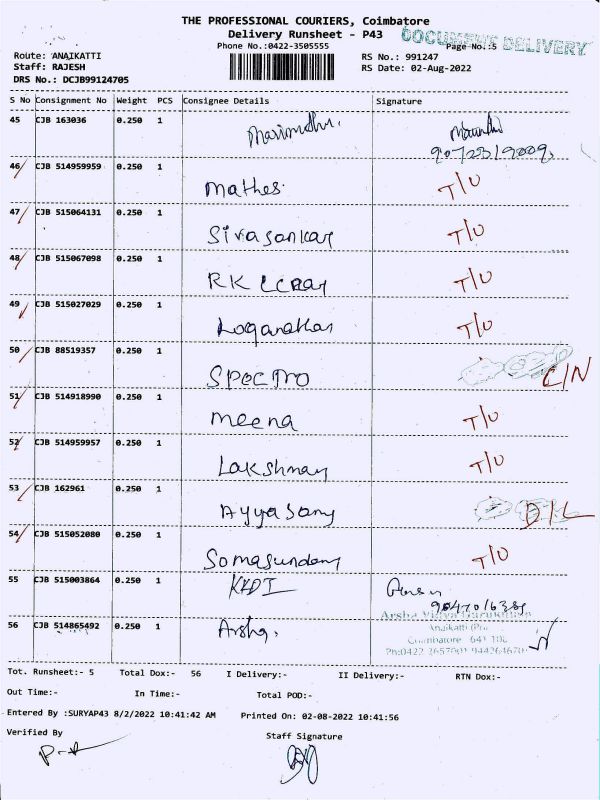 THE PROFESSIONAL COURIERS, Coimbatore
Delivery Runsheet - P43
DOCUMENT DELIVERY
Phone No.:0422-3505555
Page No.:5
Route: ANAIKATTI
Staff: RAJESH
DRS No.: DCJB99124705
RS No.: 991247
RS Date: 02-Aug-2022
S No Consignment No Weight PCS Consignee Details Signature
45 CJB 163036 0.250 1 Marimuthu.
46 CJB 514959959 0.250 1 Mathes T/U
47 CJB 515064131 0.250 1 Sivasankar T/U
48 CJB 515067098 0.250 1 RK T/U
49 CJB 515027029 0.250 1 Loganathan T/U
50 CJB 88519357 0.250 1 SPECTRO C/N
51 CJB 514918990 0.250 1 meena T/U
52 CJB 514959957 0.250 1 Lakshman T/U
53 CJB 162961 0.250 1 Ayyasamy D/L
54 CJB 515052080 0.250 1 Somasundaram T/U
55 CJB 515003864 0.250 1
56 CJB 514865492 0.250 1 Arsha.
Arsha Vidya Gurukulam
Anaikatti (Po)
Coimbatore 641 108
Tot. Runsheet:- 5 Total Dox:- 56 I Delivery:- II Delivery:- RTN Dox:-
Out Time:- In Time:- Total POD:-
Entered By :SURYAP43 8/2/2022 10:41:42 AM Printed On: 02-08-2022 10:41:56
Verified By Staff Signature